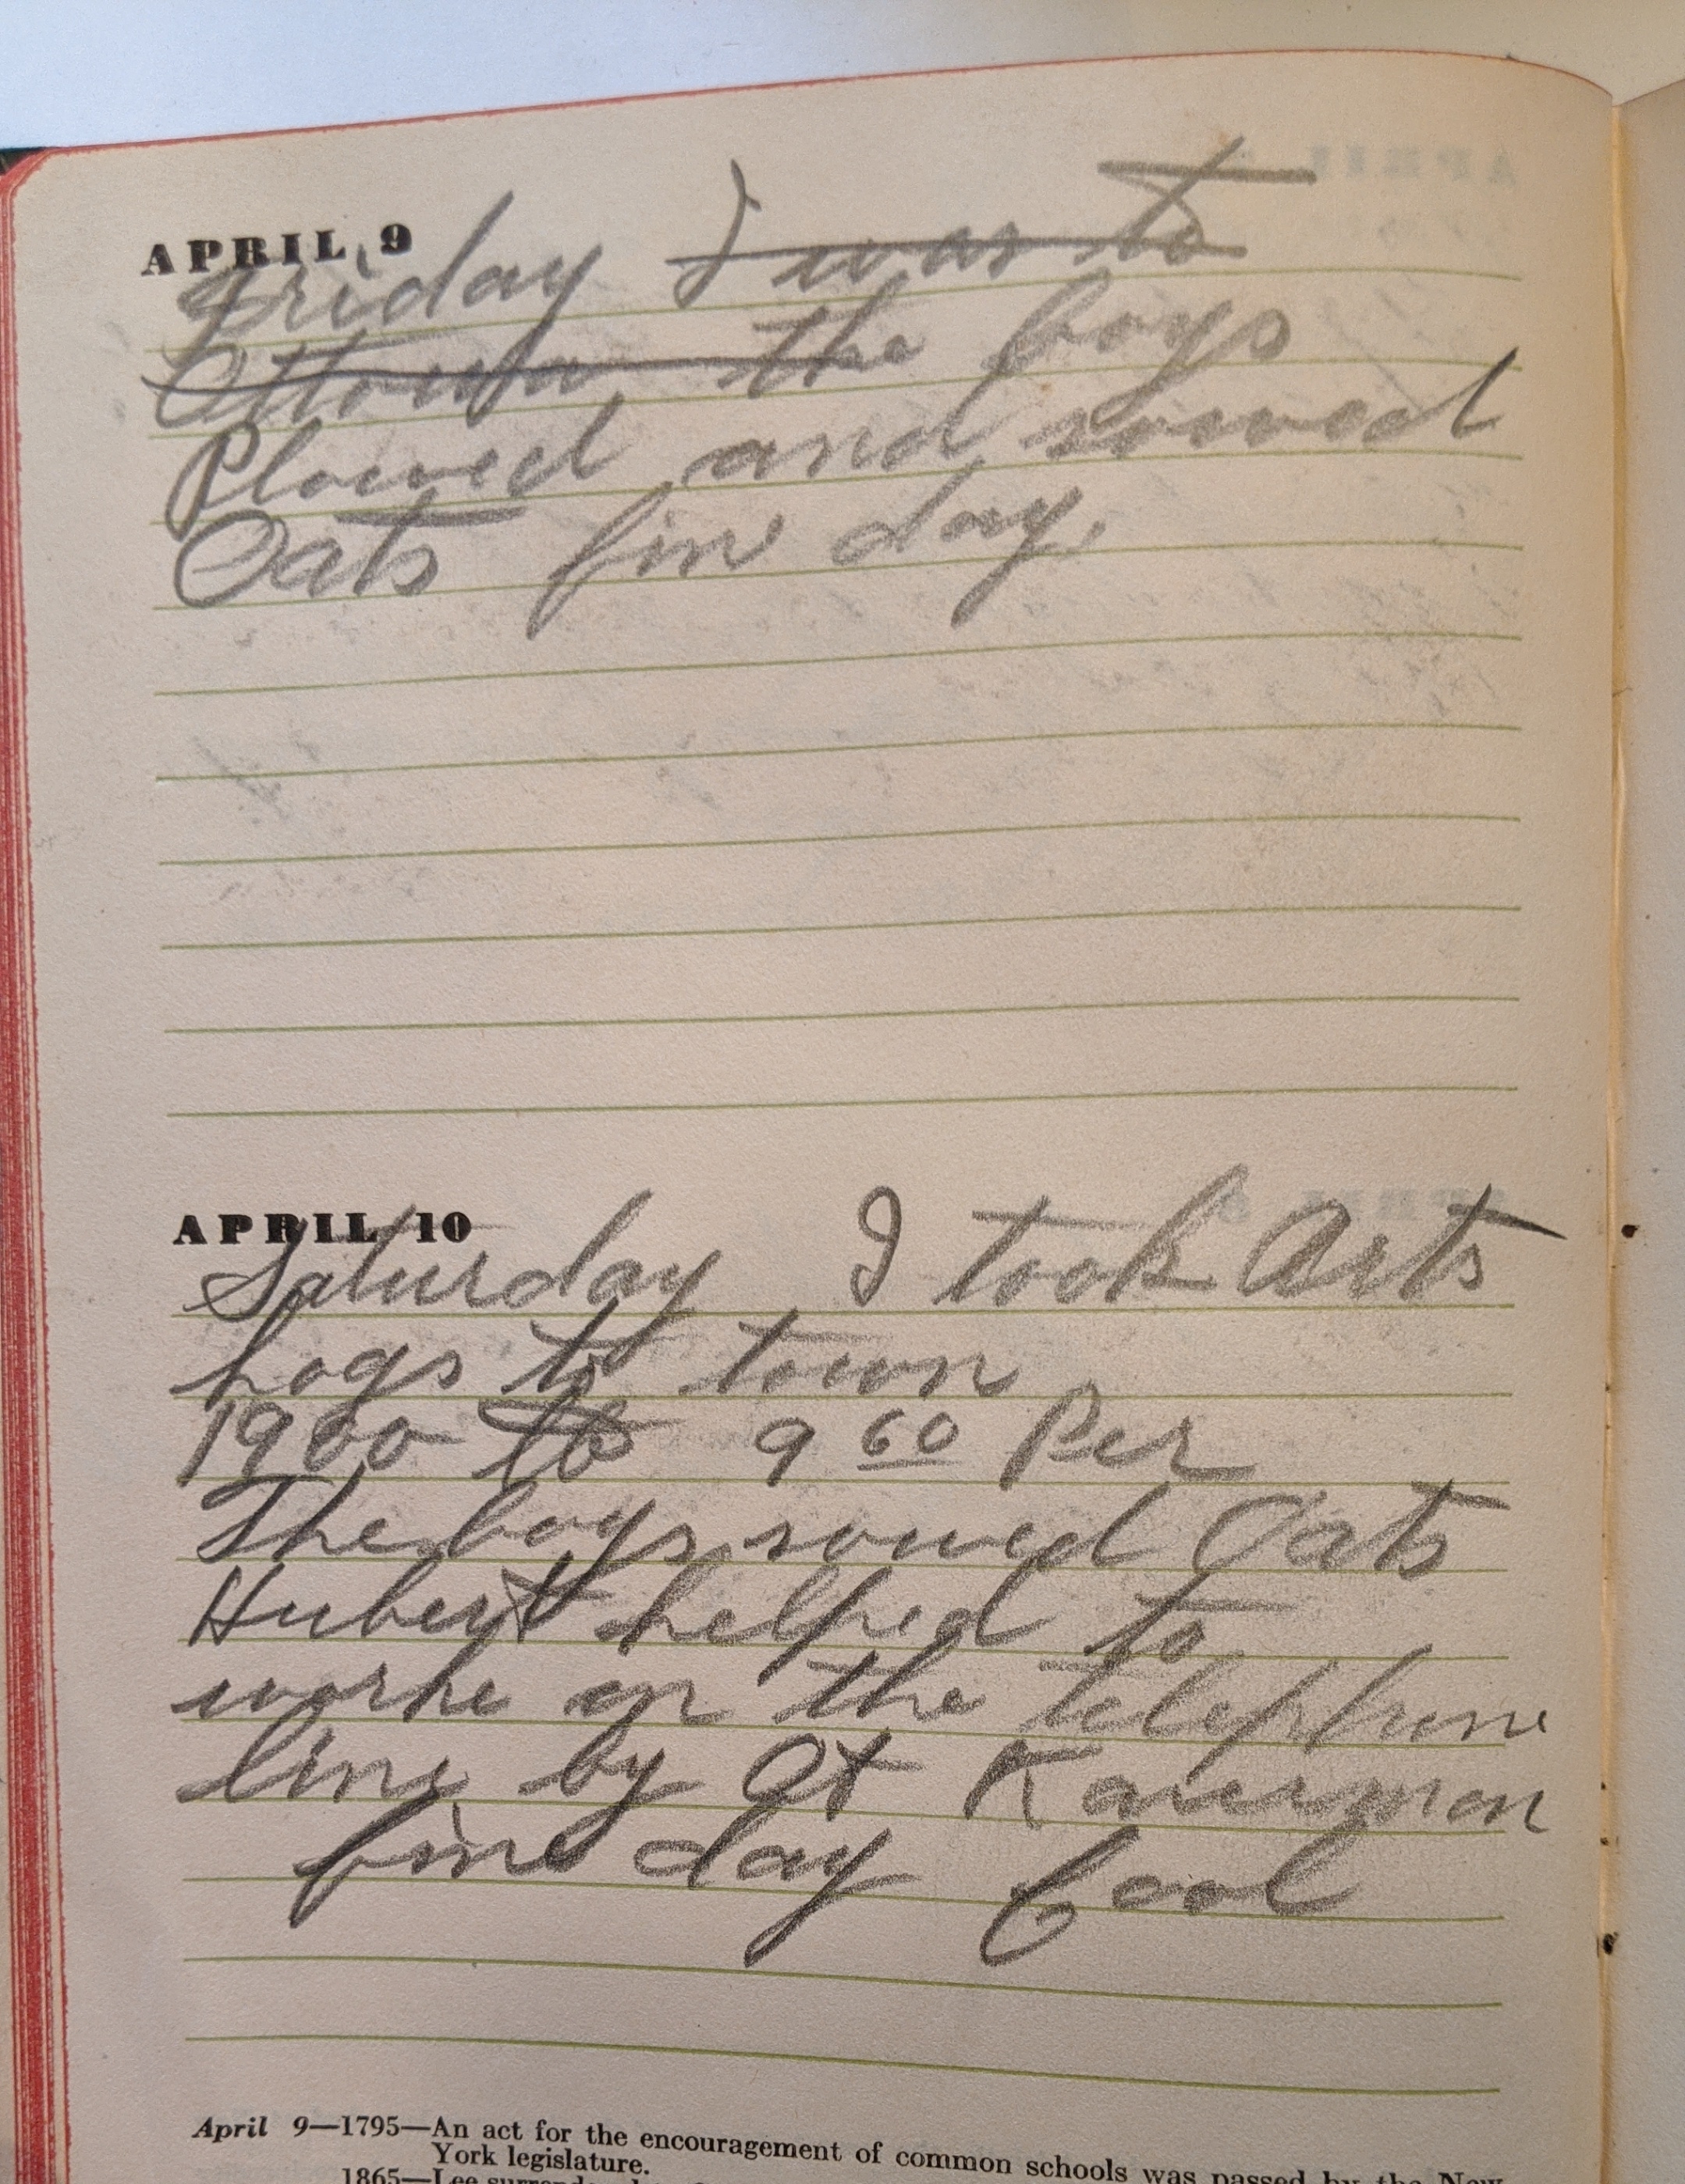 APRIL 9
Friday I was to
Ottawa the boys
Plowed and sowed
Oats fine day.
APRIL 10
Saturday I took Arts
hogs to town
1900 lb 9 60 Per
The boys sowed Oats
Hubert helped to
worke on the telephone
line by At
fine day Cool
April 9—1795—An act for the encouragement of common schools was passed by the New
York legislature.
1865—Lee